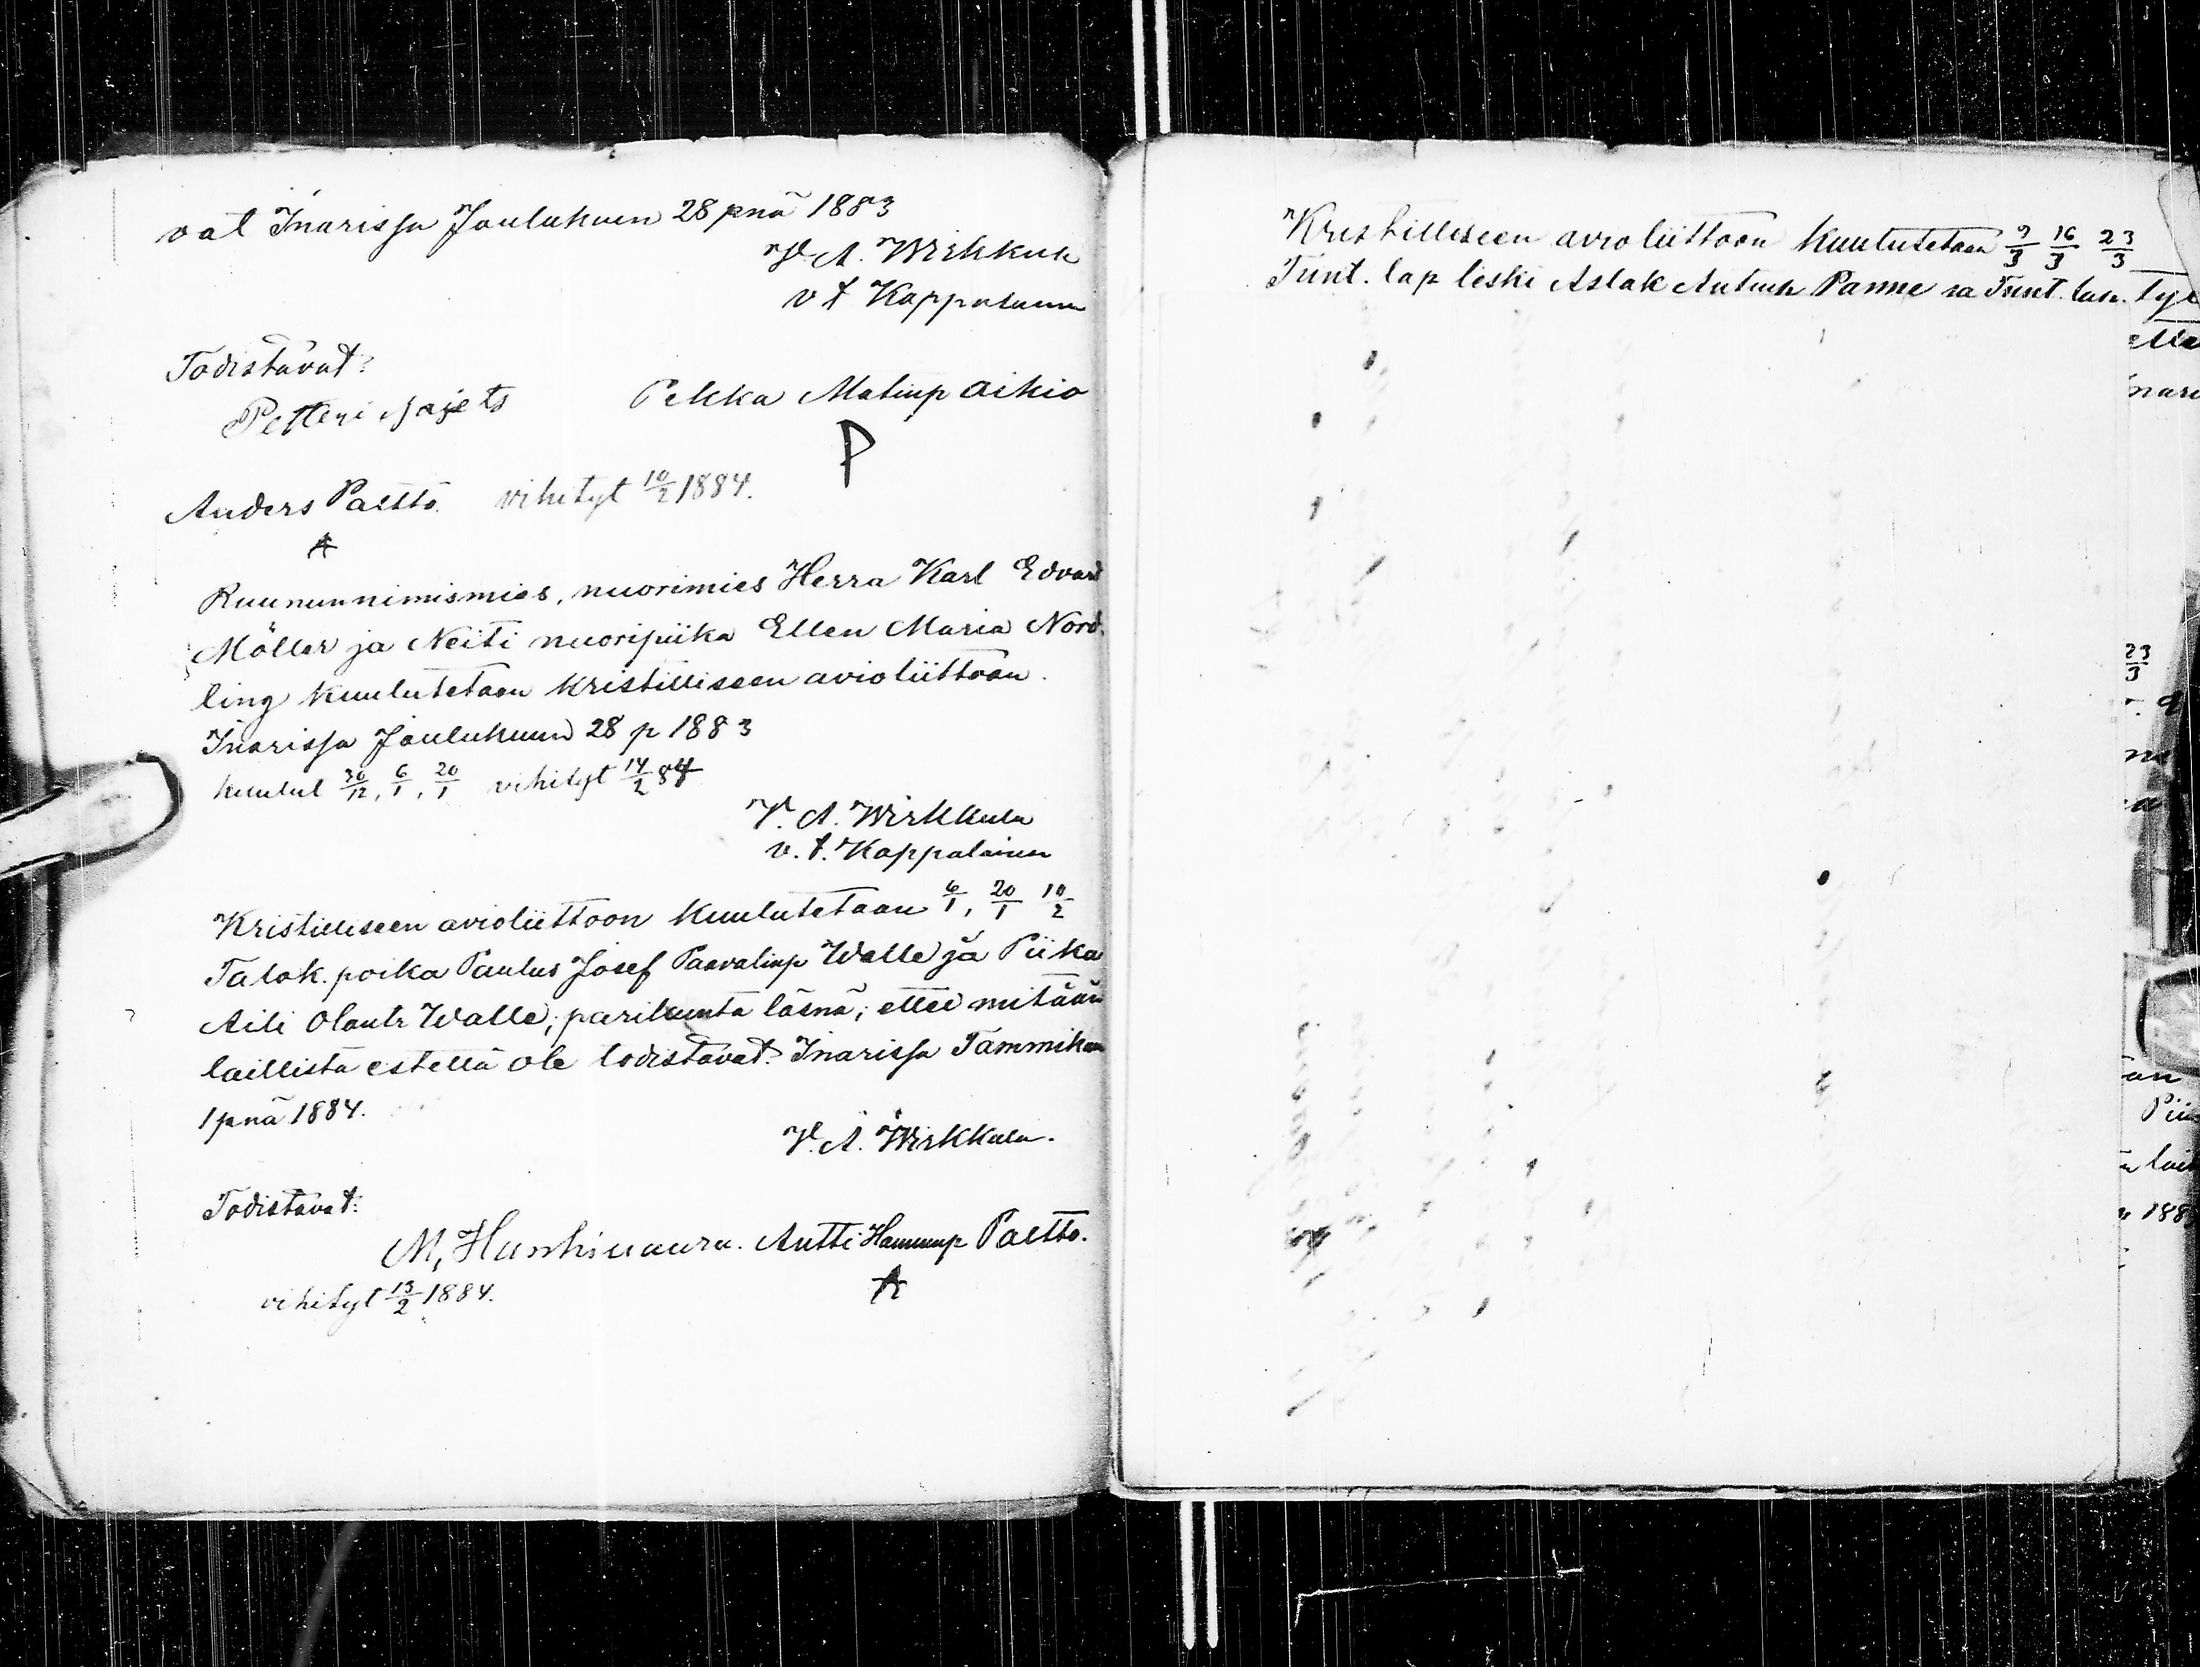 vat Inarissa Joulukuun 28 pnä 1883
V. A. Wirkkula
v t Kappalainen
Todistavat:
Petteri Sajets
Pekka Matinp aikio
P
Anders Paltto. vihityt 10/2 1884.
A
Ruununnimismies, nuorimies Herra Karl Edvard
Möller ja Neiti nuoripiika Ellen Maria Nord-
ling kuulutetaan kristilliseen avioliittoon.
Inarissa Joulukuun 28 p 1883
kuulut 30/12, 6/1, 20/1 vihityt 14/2 84
V. A. Wirkkula
v. t. Kappalainen
Kristilliseen avioliittoon kuulutetaan 6/1, 20/1 10/2
Talok. poika Paulus Josef Paavalinp Walle ja Piika
Aili Olantr Walle; parikunta läsnä; ettei mitään
laillista estettä ole todistavat. Inarissa Tammikuun
1 pnä 1884.
V. A. Wirkkula.
Todistavat:
M, Hanhivaara. Antti Hannunp Paltto.
A
vihityt 13/2 1884.
Kristilliseen avioliittoon kuulutetaan 9/3 16/3 23/3
Tunt. lap leski Aslak Antinp Panne ja Tunt. lap. Ty
23/3
188